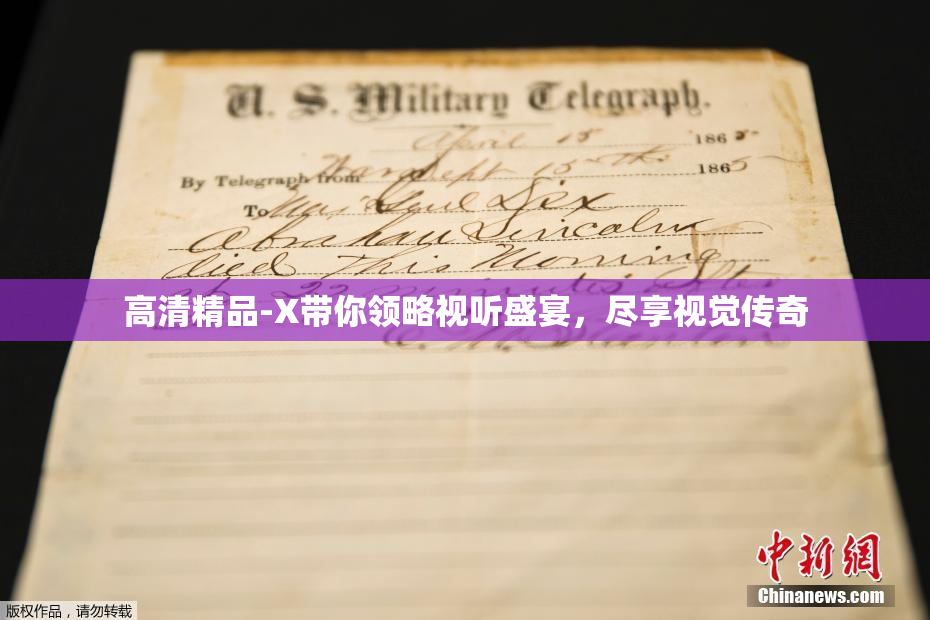 U. S. Military Telegraph.
April 15 1865
By Telegraph from War Dept 15th 1865
To Maj Genl Dix
Abraham Lincoln
died This Morning
at 22 minutes after
高清精品-X带你领略视听盛宴，尽享视觉传奇
E. M. Stanton
中新网
Chinanews.com
版权作品，请勿转载